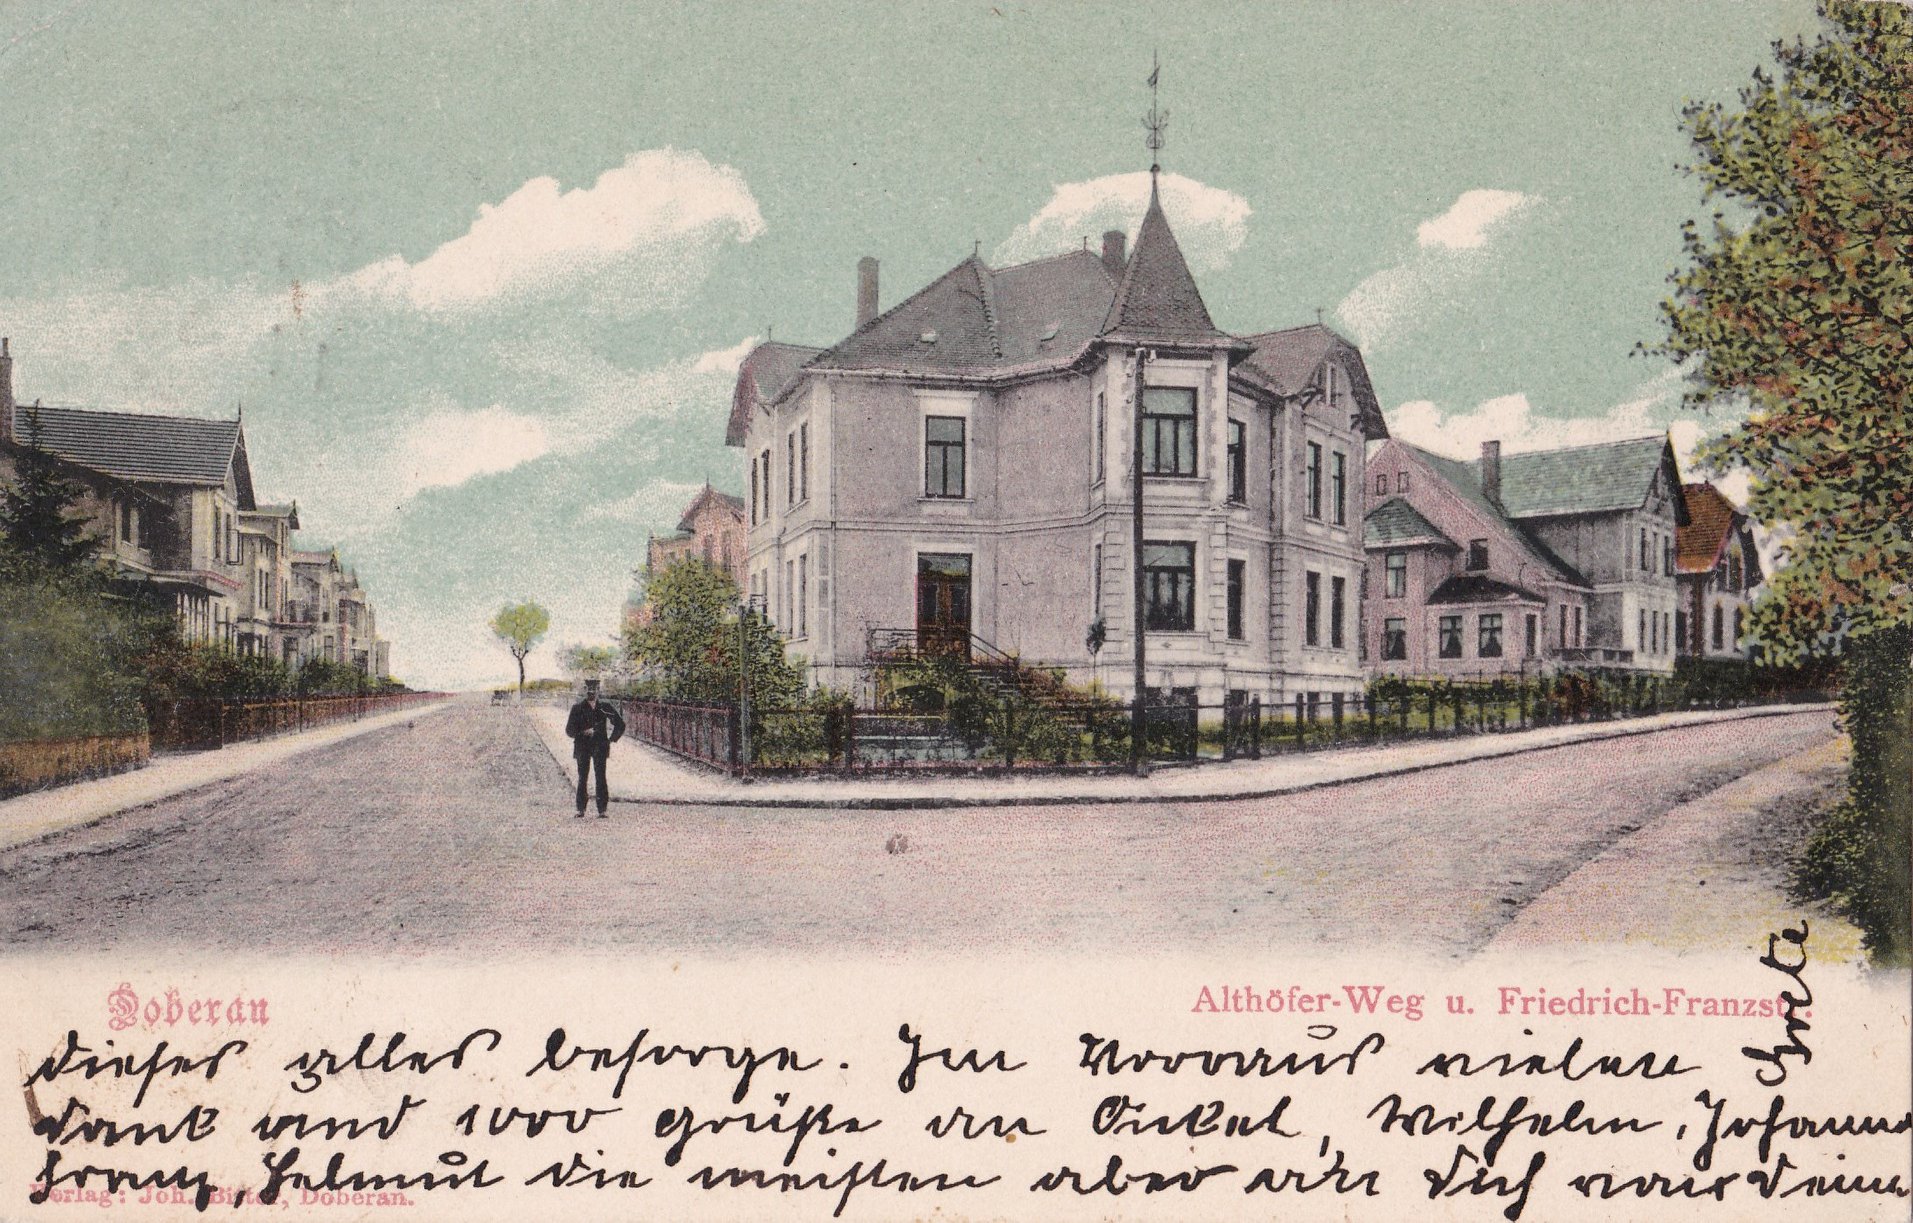 Doberan
Althöfer-Weg u. Friedrich-Franzstr.
dieses alles besorge. Im Vorraus vielen
Dank und 1000 Grüße an Onkel, Wilhelm, Johanna
Franz, Helmut die meisten aber an Dich von Deine
Grete
Verlag: Joh. Bitter, Doberan.